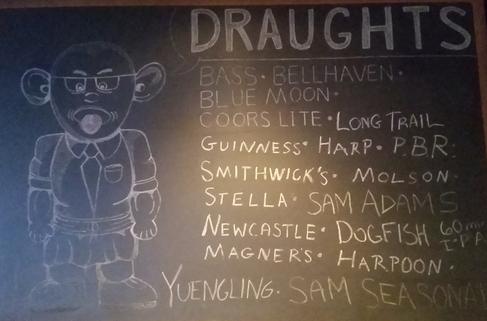 DRAUGHTS
BASS • BELLHAVEN •
BLUE MOON •
COORS LITE • LONG TRAIL
GUINNESS • HARP • PBR •
SMITHWICK'S • MOLSON •
STELLA • SAM ADAMS
NEWCASTLE • DOGFISH 60 min IPA
MAGNER'S • HARPOON •
YUENGLING • SAM SEASONAL